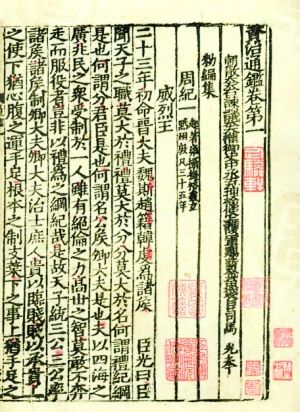 資治通鑑卷第一
朝散大夫右諫議大夫權御史中丞充理檢使上護軍賜紫金魚袋臣司馬 光奉
勑編集
周紀一 起著雍攝提格盡玄
黓困敦凡三十五年
威烈王
二十三年初命晉大夫魏斯趙籍韓虔爲諸侯 臣光曰臣
聞天子之職莫大於禮禮莫大於分分莫大於名何謂禮紀綱
是也何謂分君臣是也何謂名公侯卿大夫是也夫以四海之
廣兆民之衆受制於一人雖有絕倫之力高世之智莫敢不奔
走而服役者豈非以禮爲之綱紀哉是故天子統三公三公率
諸侯諸侯制卿大夫卿大夫治士庶人貴以臨賤賤以承貴上
之使下猶心腹之運手足根本之制支葉下之事上猶手足之